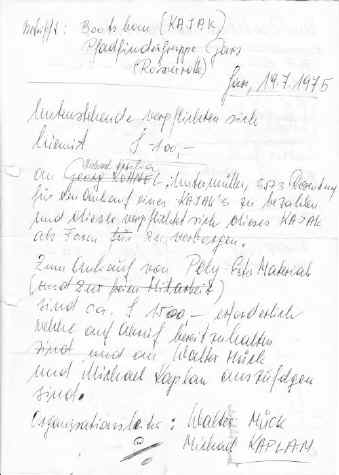 Betrifft: Bootsbau (KAJAK)
Pfadfindergruppe Gars
Gars, 19.7.1975
Untenstehende verpflichten sich
hiemit S 100,-
an Georg Untermüller, 3573 Rosenburg
für den Ankauf eines KAJAK's zu bezahlen
und dieser verpflichtet sich dieses KAJAK
als Form für zu verborgen.
Zum Ankauf von Poly Material
(und zur freien Mitarbeit)
sind ca. S 1500,- erforderlich
welche auf Abruf bereitzuhalten
sind und an Walter Mück
und Michael Kaplan auszufolgen
sind.
Organisationsleiter: Walter Mück
Michael KAPLAN